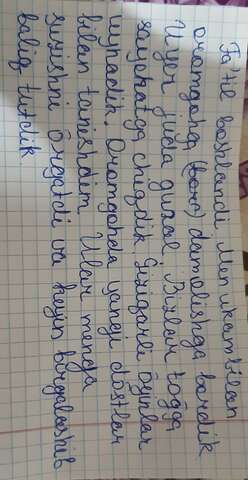 Ta'til boshlandi. Men ukam bilan
oromgohga (borc) damolishga bordik
U yer juda guzal Bizlar toğga
sayohatga chiqdik. Qiziqarli õyinlar
uynadik. Oromgohda yangi dõstlar
bilan tanishdim. Ular menga
suzishni õrgatdi va keyin birgalashib
baliq tutdik